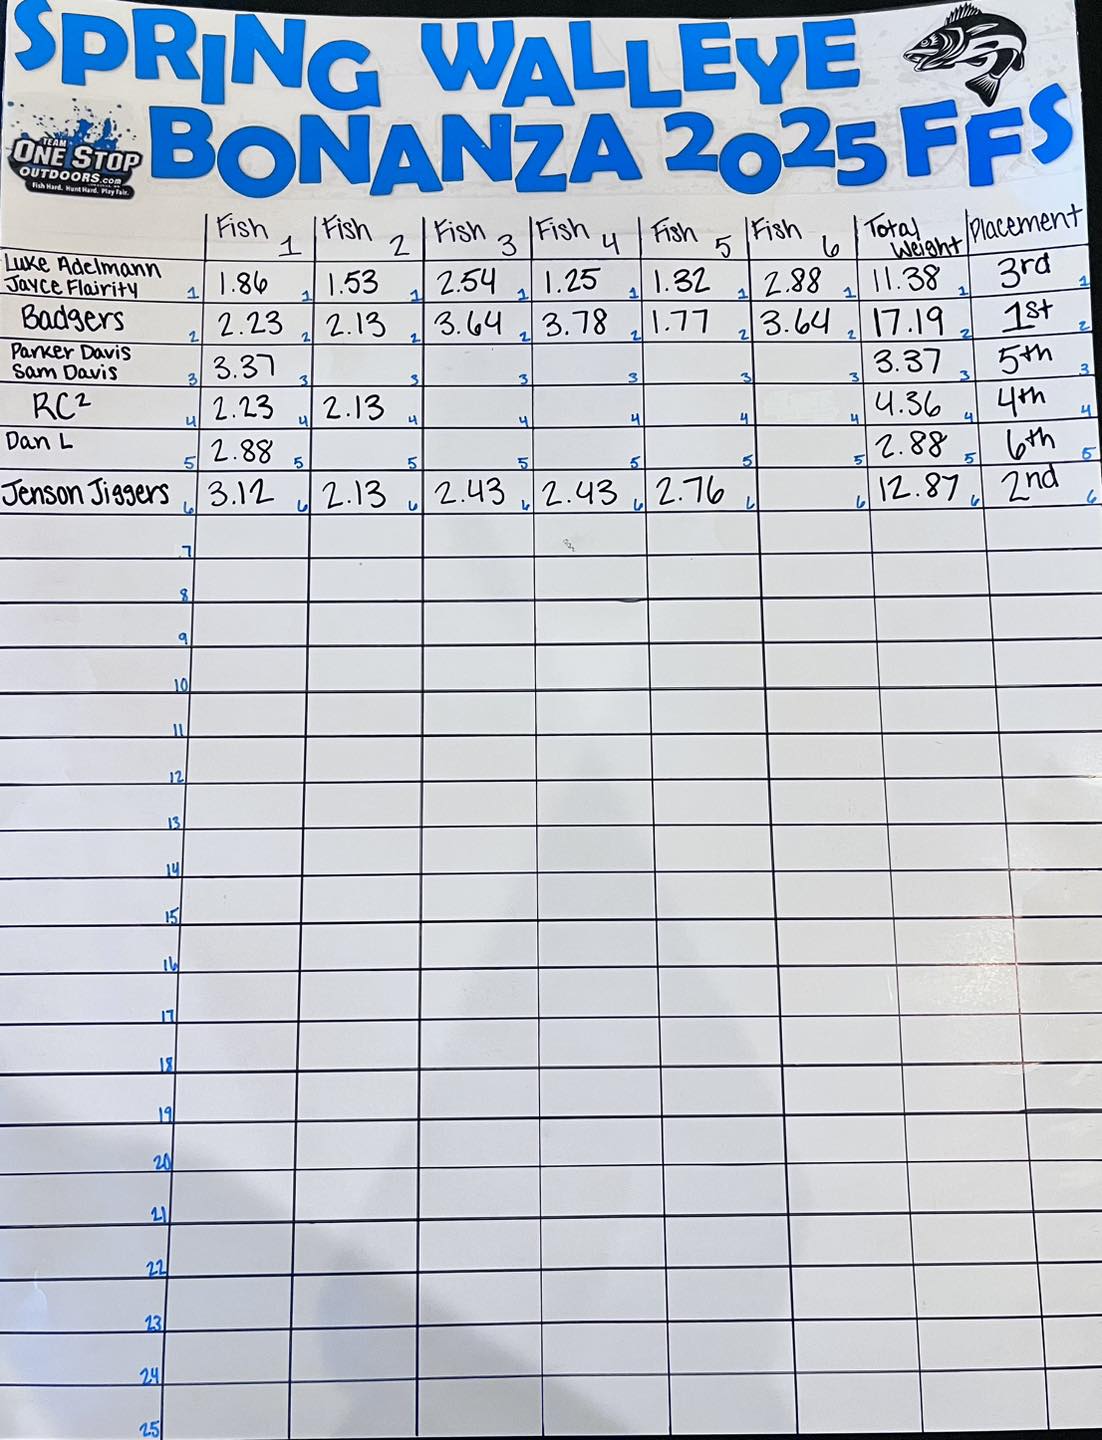 SPRING WALLEYE
BONANZA 2025 FFS
TEAM
ONE STOP
OUTDOORS.com
Fish Hard. Hunt Hard. Play Fair.
Fish 1 Fish 2 Fish 3 Fish 4 Fish 5 Fish 6 Total Weight Placement
Luke Adelmann
Jayce Flairity 1 1.86 1 1.53 1 2.54 1 1.25 1 1.32 1 2.88 1 11.38 1 3rd 1
Badgers 2 2.23 2 2.13 2 3.64 2 3.78 2 1.77 2 3.64 2 17.19 2 1st 2
Parker Davis
Sam Davis 3 3.37 3 3 3 3 3 3 3.37 3 5th 3
RC² 4 2.23 4 2.13 4 4 4 4 4 4.36 4 4th 4
Dan L 5 2.88 5 5 5 5 5 5 2.88 5 6th 5
Jenson Jiggers 6 3.12 6 2.13 6 2.43 6 2.43 6 2.76 6 6 12.87 6 2nd 6
7
8
9
10
11
12
13
14
15
16
17
18
19
20
21
22
23
24
25